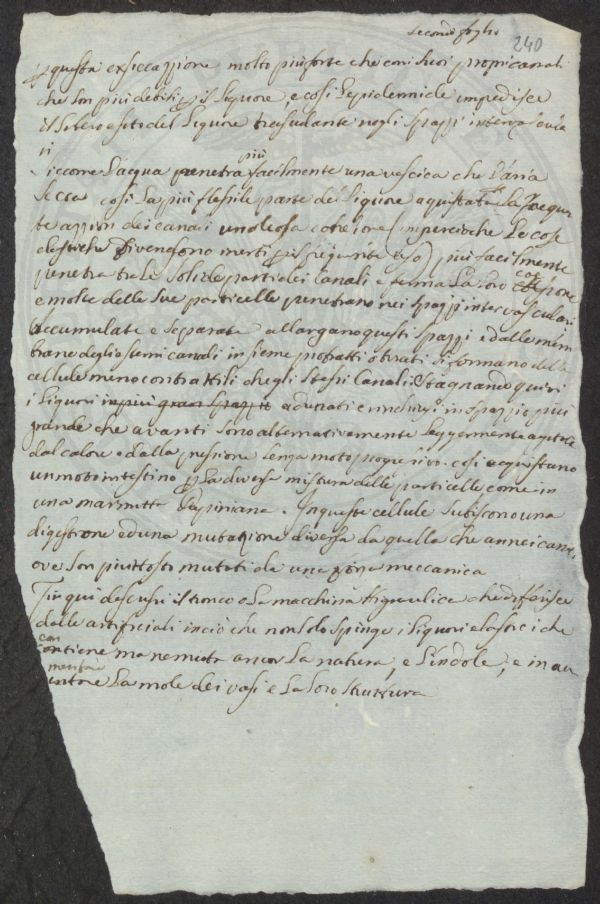 secondo foglio
240
questa exsiccazzione molto piu forte che con i suoi propri canali
che son piu deboli p il liquore, e cosi l'epidermide impedisce
il libero esito del liquore trasudante negli spazzi intervascula
ri
Siccome l'acqua penetra più facilmente una vescica che l'aria
secca cosi la più flessile parte del liquore aquistata
te azzion dei canali un oleosa (impercioche le cose
elastiche divengono inerti) più facilmente
penetra tra le solide parti dei canali e ferma la loro coesione
e molte delle sue particelle penetrano nei spazzi intervasculari
accumulate e separate allargano questi spazzi e dalle mem
brane degli stessi canali insieme protratti si formano delle
cellule meno contrattili che gli stessi canali: Stagnando quivi
i liquori in più gran spazio adunati e rinchiusi in spazzio più
grande che avanti sono alternativamente leggermente agitati
dal calore o dalla presione senza moto progresivo. cosi acquistano
un moto intestino p la diversa mistura delle particelle come in
una marmitta Papiniana. In queste cellule subiscono una
digestione ed una mutazione diversa da quella che anno i canali
ove son piuttosto mutati da una meccanica
Fin qui descussi il tronco o la macchina Higraulica che differisce
dalle artificiali in ciò che non solo spinge i liquori e la forci che
contiene ma ne muta ancor la natura, e l'indole, e in au
mentare la mole dei vasi e la loro struttura